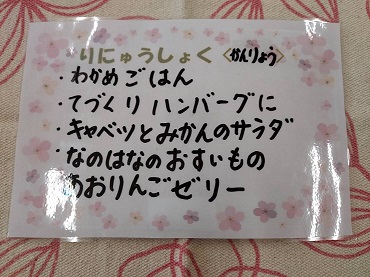 りにゅうしょく〈かんりょう〉
・わかめごはん
・てづくりハンバーグに
・キャベツとみかんのサラダ
・なのはなのおすいもの
あおりんごゼリー